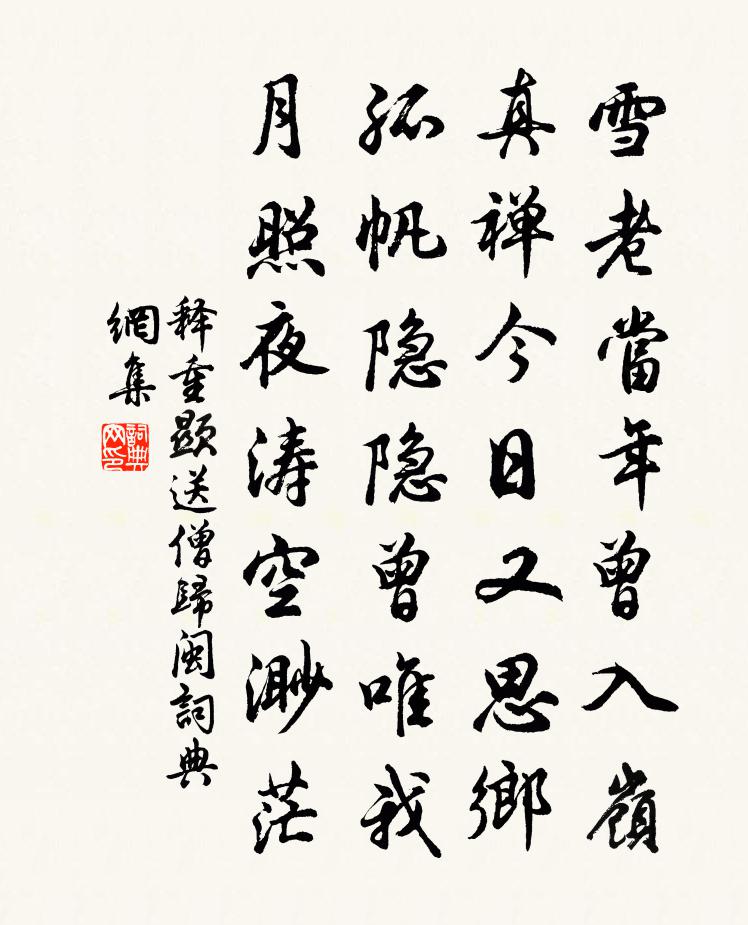 雪老當年曾入嶺
真禅今日又思鄉
孤帆隐隐曾唯我
月照夜涛空渺茫
释重顯送僧歸閩詞典
網集
詞典
网印